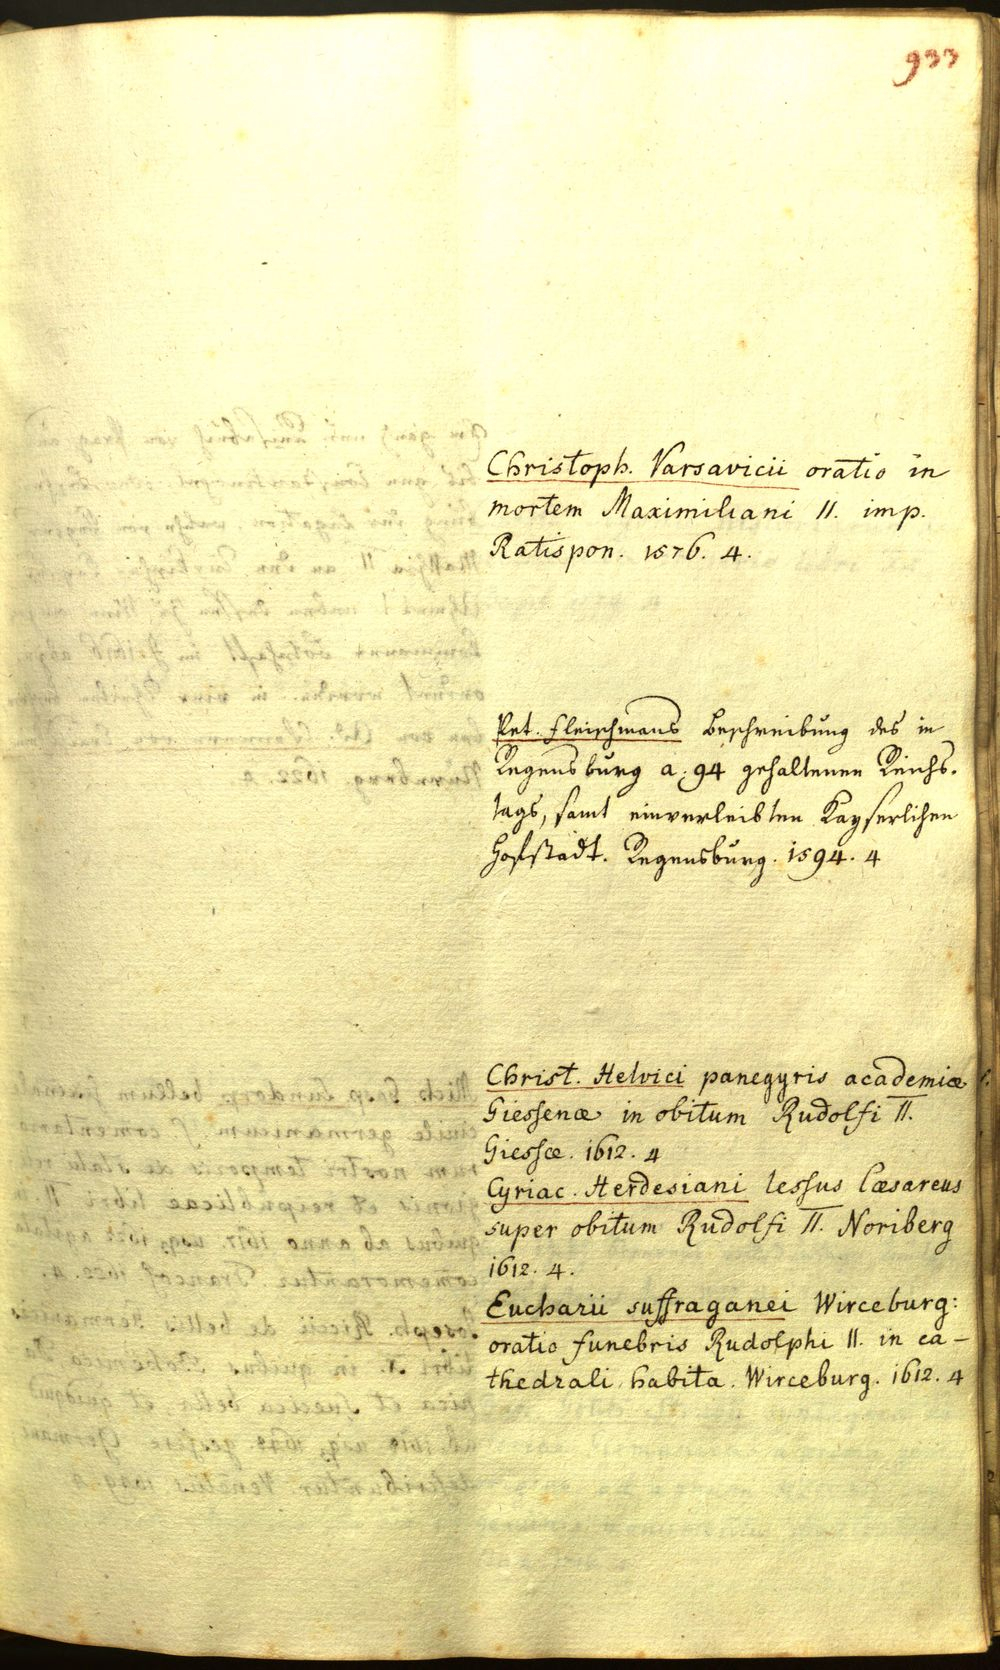 933
Christoph. Varsavicii oratio in
mortem Maximiliani II. imp.
Ratispon. 1576. 4.
Pet. Fleischmans Beschreibung des in
Regensburg a. 94 gehaltenen Reichs-
tags, samt einverleibten Kayserlichen
Hofstadt. Regensburg. 1594. 4
Christ. Helvici panegyris academiæ
Giessenæ in obitum Rudolfi II.
Giessæ. 1612. 4
Cyriac. Herdesiani lessus Cæsareus
super obitum Rudolfi II. Noriberg
1612. 4.
Eucharii suffraganei Wirceburg:
oratio funebris Rudolphi II. in ca-
thedrali habita. Wirceburg. 1612. 4